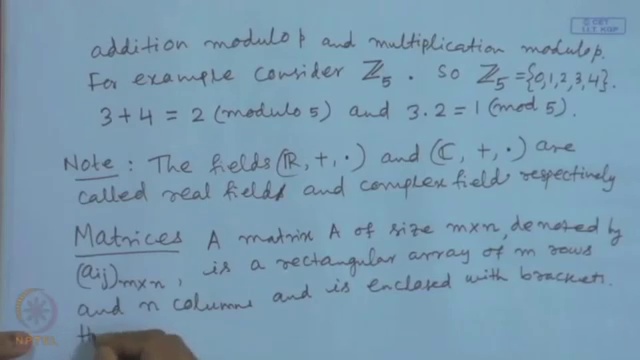 © CET
I.I.T. KGP
addition modulo p and multiplication modulo p.
For example consider ℤ₅ . So ℤ₅ = {0,1,2,3,4}.
3+4 = 2 (modulo 5) and 3.2 = 1 (mod 5).
Note : The fields (ℝ, +, ·) and (ℂ, +, ·) are
called real field and complex field respectively
Matrices A matrix A of size m×n, denoted by
(aij)m×n, is a rectangular array of m rows
and n columns and is enclosed with brackets.
NPTEL